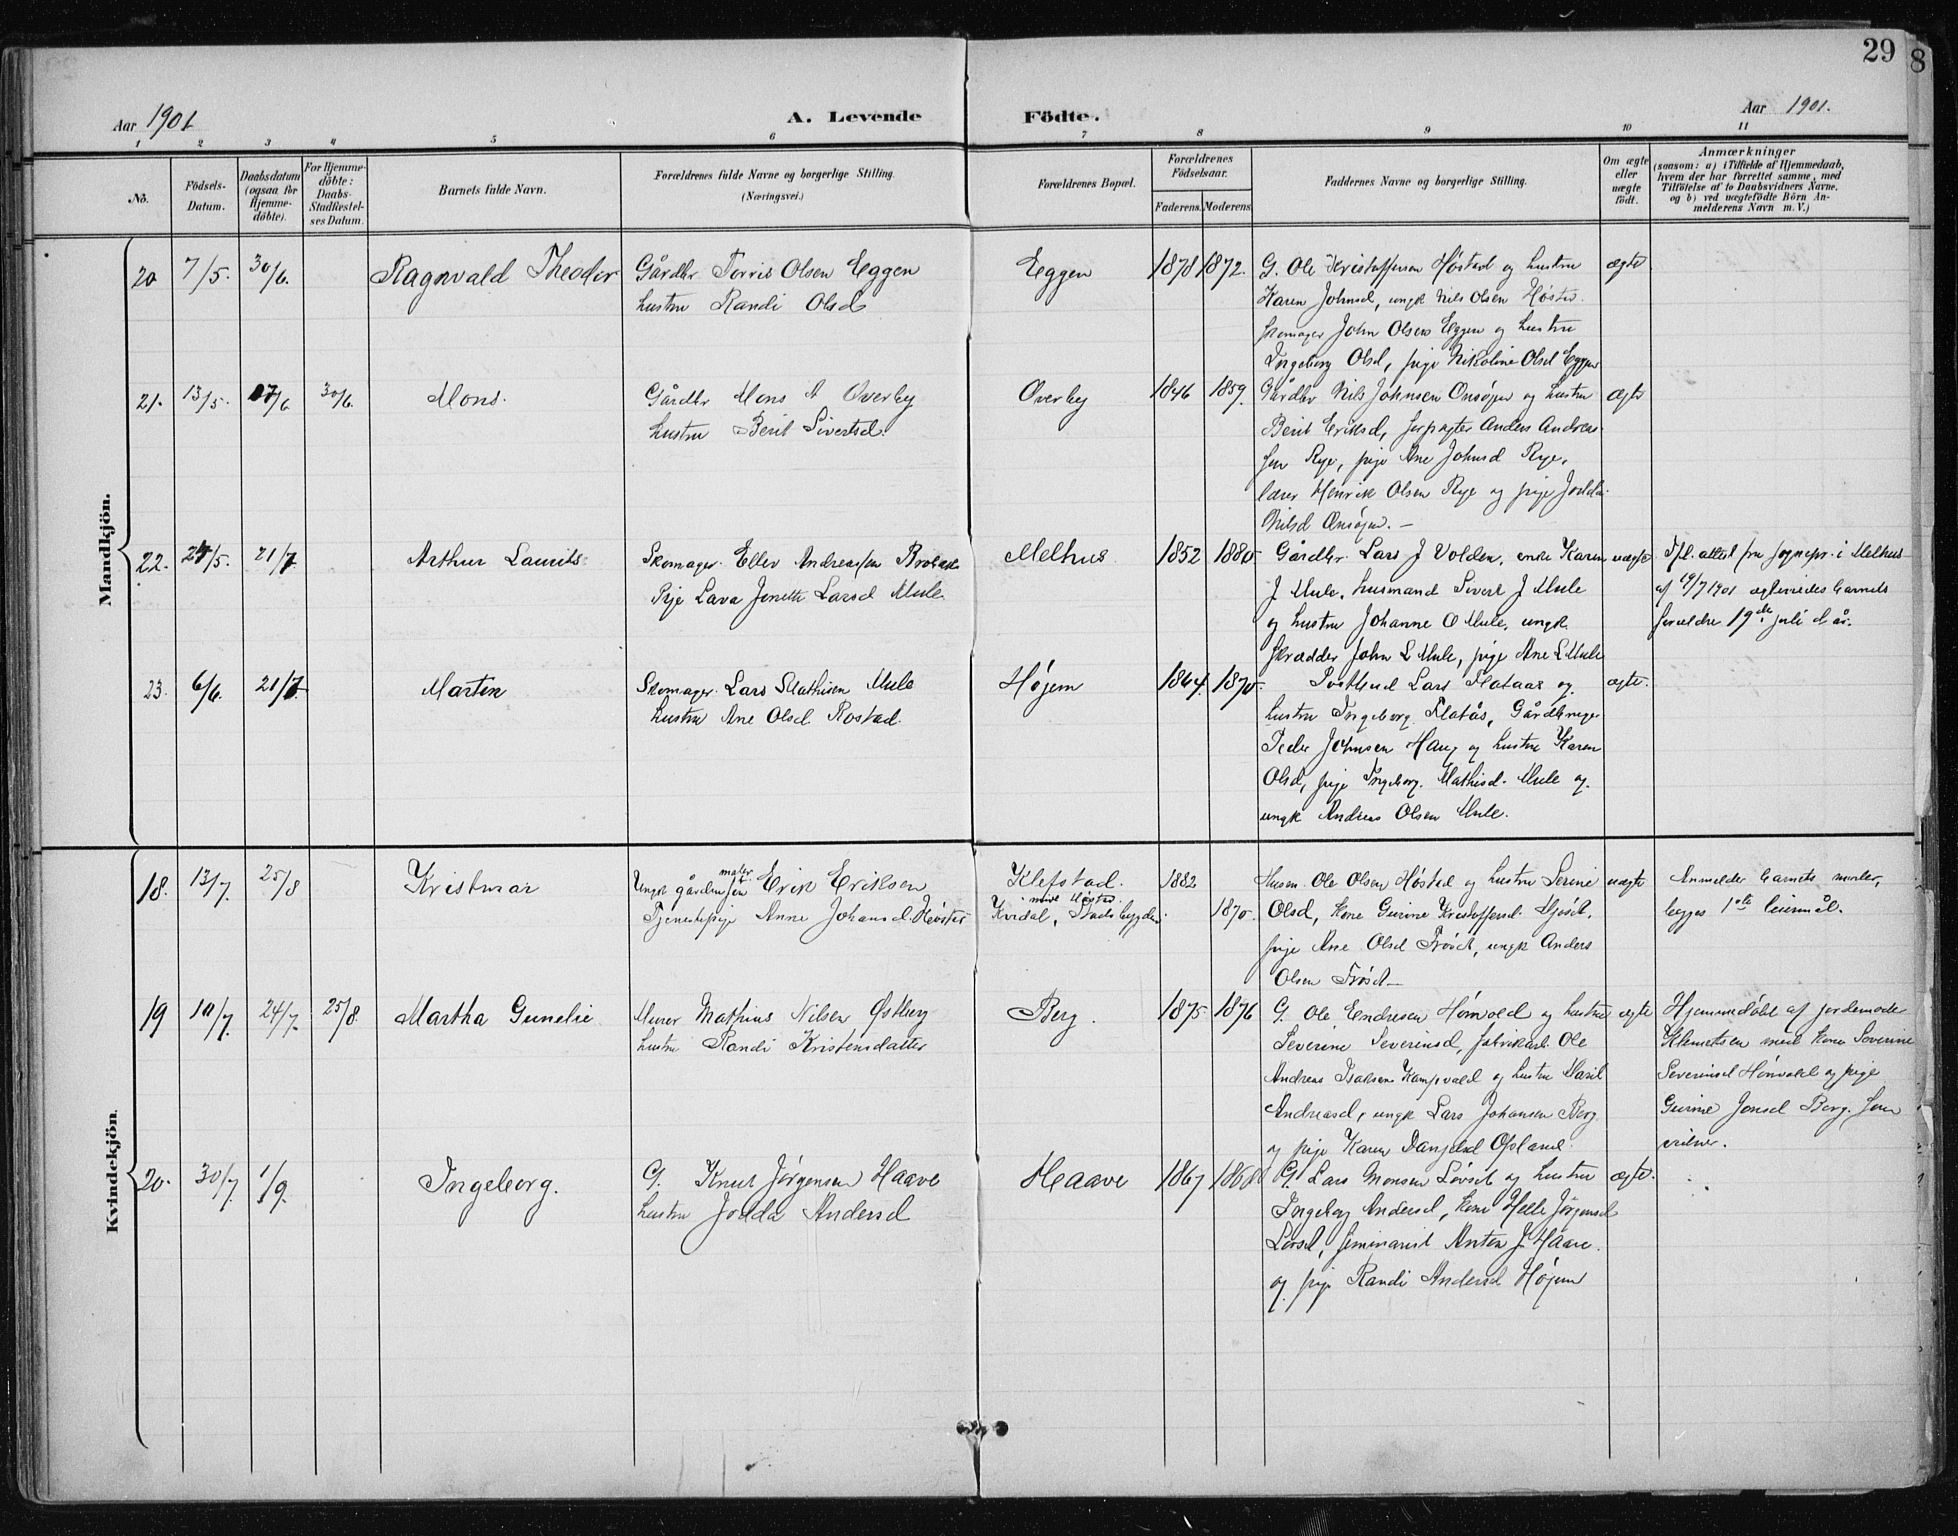 29
8
Aar 1901
A. Levende Födte.
Aar 1901.
1 2 3 4 5 6 7 8 9 10 11
No.
Födsels-
Datum.
Daabsdatum
(ogsaa for
Hjemme-
döbte).
For Hjemme-
döbte:
Daabs-
Stadfæstel-
ses Datum.
Barnets fulde Navn.
Forældrenes fulde Navne og borgerlige Stilling.
(Næringsvei.)
Forældrenes Bopæl.
Forældrenes
Födselsaar.
Faderens. Moderens.
Faddernes Navne og borgerlige Stilling.
Om ægte
eller
uægte
födt.
Anmærkninger
(saasom: a) i Tilfælde af Hjemmedaab,
hvem der har forrettet samme, med
Tilföielse af to Daabsvidners Navne,
og b) ved uægtefödte Börn An-
melderens Navn m. V.)
Mandkjön.
20 7/5. 30/6. Ragnvald Theodor
Gårdbr Torris Olsen Eggen
hustru Randi Olsd
Eggen 1878 1872.
G. Ole Kristoffersen Høstad og hustru
Karen Johnsd, ungk Nils Olsen Høstad.
skomager John Olsen Eggen og hustru
Ingeborg Olsd, pige Nikoline Olsd Eggen
ægte
21. 13/5. 27/6 30/6. Mons.
Gårdbr Mons A Overby
hustru Berit Sivertsd.
Overby 1846 1859.
Gårdbr Nils Johnsen Onsøyen og hustru
Berit Eriksd, forpagter Anders Andrea-
sen Rye, pige Ane Johnsd Rye,
lærer Henrik Olsen Rye og pige Jodda
Nilsd Onsøyen. —
ægte
22. 24/5. 21/7 Arthur Laurits
Skomager Eller Andreassen Brobak
Pige Lava Jenette Larsd Mule
Melhus 1852 1880
Gårdbr. Lars J Volden, enke Karen
J Mule, husmand Sivert J Mule
og hustru Johanne O Mule, ungk
skrædder John L Mule, pige Ane L Mule
uægte
Ifl. attest fra sognepr. i Melhus
af 19/7 1901 ægteviedes barnets
forældre 19de juli d. år.
23. 6/6. 21/7. Marten
Skomager Lars Mathisen Mule
hustru Ane Olsd Rostad.
Højem 1864. 1870.
Postbud Lars Flataas og
hustru Ingeborg Flatås, Gårdbruger
Peder Johnsen Haug og hustru Karen
Olsd, pige Ingeborg Mathisd. Mule og
ungk Andreas Olsen Mule.
ægte.
Kvindekjön.
18. 13/7. 25/8 Kristmar
maler
Ungk gårdmsøn Erik Eriksen
Tjenestepige Anne Johansd. Høstad
Klefstad.
Kvidal, Stadsbygden.
1882
1870.
Husm. Ole Olsen Høstad og hustru Serine
Olsd, kone Gurine Kristoffersd.
pige Ane Olsd Frøset, ungk Anders
Olsen Frøset —
uægte
Anmelder barnets moder,
begges 1ste leiermål.
19 10/7. 24/7. 25/8. Martha Gunelie
Murer Mathias Nilsen Østberg
hustru Randi Kristensdatter
Berg. 1875 1876
G. Ole Endresen Hønvold og hustru
Severine Severinsd, fabrikarb. Ole
Andreas Isaksen Kampvold og hustru Marit
Andreasd, ungk Lars Johansen Berg
og pige Karen Danjelsd Opland.
ægte
Hjemmedöbt af jordemoder
Klemetsen med kone Severine
Severinsd Hønvold og pige
Gurine Jonsd Berg som
vidner.
20. 30/7 1/9. Ingeborg.
G. Knut Jørgensen Haave
hustru Jodda Andersd
Haave 1867 1868
G. Lars Monsen Løvset og hustru
Ingeborg Andersd, kone Helle Jørgensd
Løvset, seminarist Anton J Haave.
og pige Randi Andersd Højem
ægte.